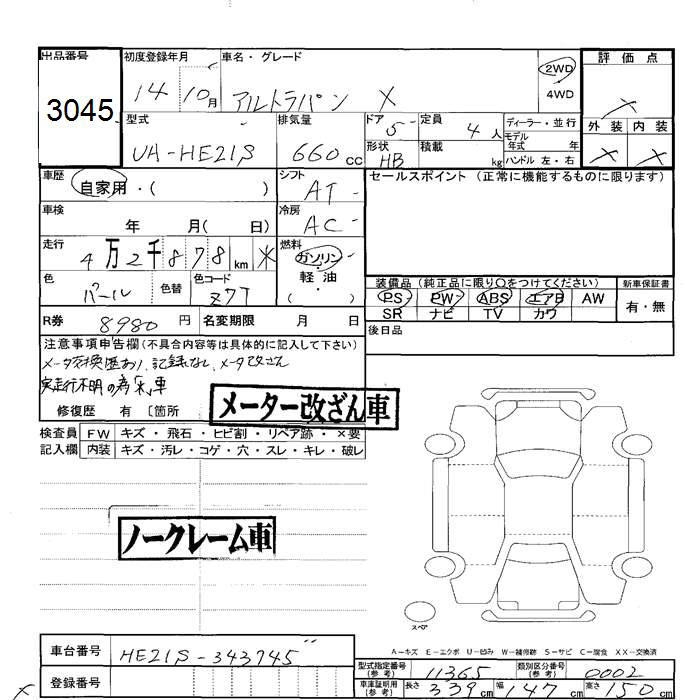 出品番号 初度登録年月 車名・グレード 2WD 評価点
3045 14 10月 アルトラパン X 4WD ×
型式 排気量 ドア 定員 ディーラー・並行 外装 内装
UA-HE21S 660cc 5 4人 モデル年式 年 × ×
形状 HB 積載 kg ハンドル 左・右
車歴 自家用・( ) シフト AT セールスポイント (正常に機能するものに限ります)
車検 年 月( 日) 冷房 AC
走行 4万2千878km ※ 燃料 ガソリン・軽油・( )
色 パール 色替 色コード Z7T
装備品(純正品に限り○をつけてください) 新車保証書
PS PW ABS エアB AW 有・無
SR ナビ TV カワ
R券 8980円 名変期限 月 日 後日品
注意事項申告欄(不具合内容等は具体的に記入して下さい)
メータ交換歴あり、記録なし、メータ改ざん
実走行不明の為「※」車
修復歴 有 〔箇所
メーター改ざん車
検査員 FW キズ・飛石・ヒビ割・リペア跡・×要
記入欄 内装 キズ・汚レ・コゲ・穴・スレ・キレ・破レ
ノークレーム車
スペア
A-キズ E-エクボ U-凹み W-補修跡 S-サビ C-腐食 XX-交換済
車台番号 HE21S-343745
型式指定番号(参考) 11365 類別区分番号(参考) 0002
登録番号
車庫証明用(参考) 長さ 339cm 幅 147cm 高さ 150cm
×